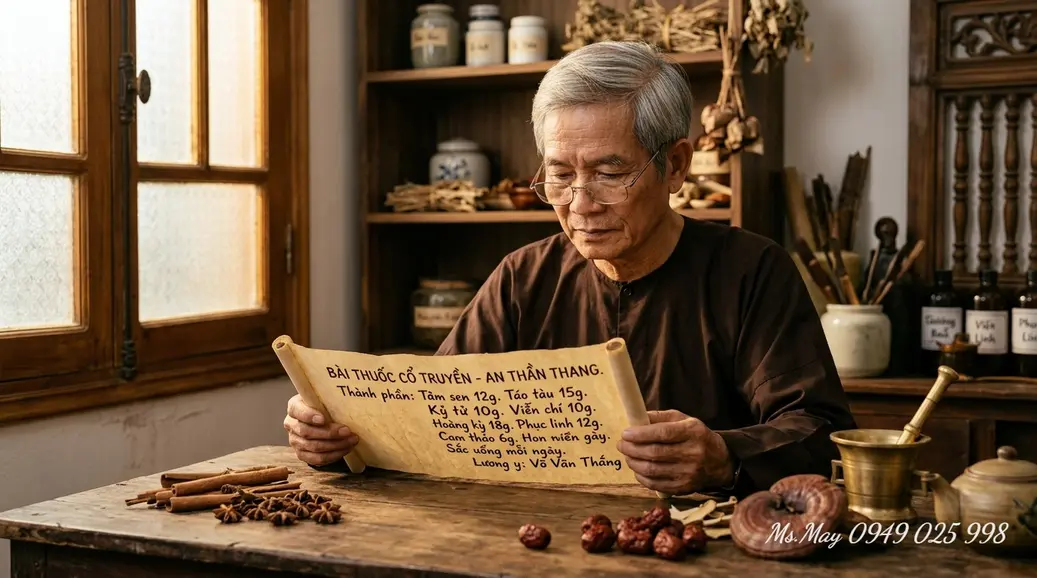 BÀI THUỐC CỔ TRUYỀN - AN THẦN THANG.
Thành phần: Tâm sen 12g. Táo tàu 15g.
Kỷ tử 10g. Viễn chí 10g.
Hoàng kỳ 18g. Phục linh 12g.
Cam thảo 6g. Hon miền gày.
Sắc uống mỗi ngày.
Lương y: Võ Văn Thắng
Viễn
Linh
Ms.May 0949 025 998